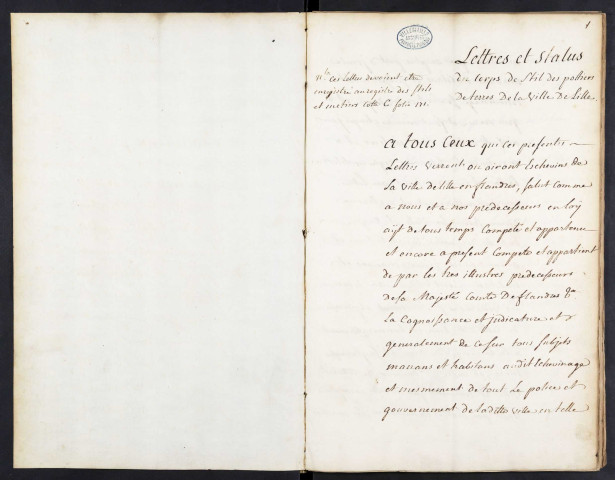 1
Lettres et status
du corps de stil des pottiers
de terres de la Ville de Lille
Nta ces lettres devroient etre
enregistré au registre des stils
et metiers cotté C folio 171.
A tous Ceux qui ces presentes
Lettres verront ou airont Eschevins de
La ville de lille en flandres, salut comme
a nous et a nos predecesseurs en loy
ayt de tous temps Competé et appartenu
et encore a present Compete et appartient
de par les tres illustres predecesseurs
de sa Majesté Comte De flandres &a
La Cognoissance et judicature et
generalement de ce sur tous subjets
manans et habitans audit Echevinage
et mesmement de tout le police et
gouvernement de laditte ville en telle